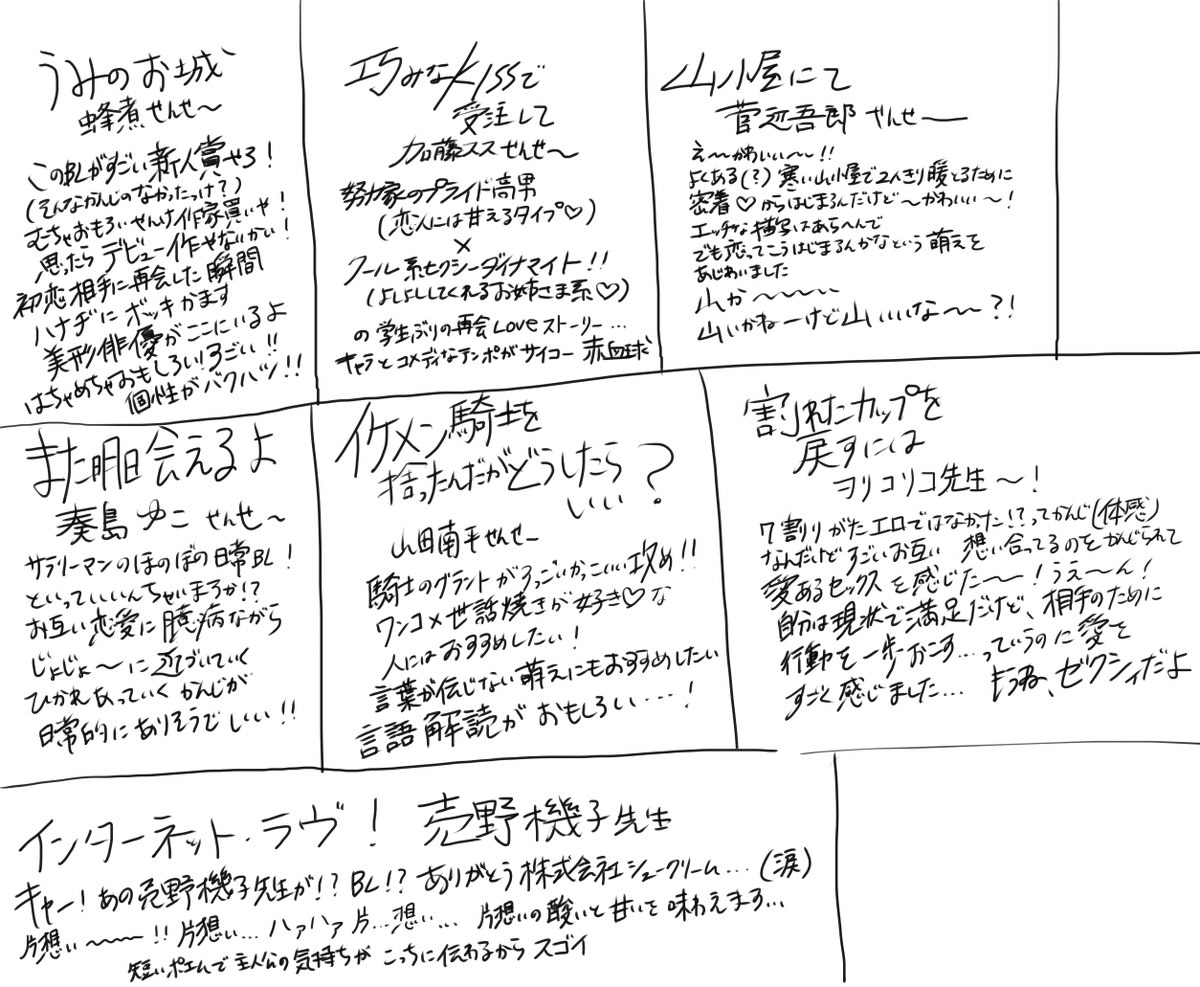 うみのお城
蜂煮せんせ〜
このBLがすごい新人賞やろ!
(そんなかんじのなかったっけ?)
むちゃおもろいやんけ作家買いや!
思ったらデビュー作やないかい!
初恋相手に再会した瞬間
ハナヂにボッキかます
美形俳優がここにいるよ
はちゃめちゃおもしろい!すごい!!
個性がバクハツ!!
巧みなKISSで
受注して
加藤スス せんせ〜
努力家のプライド高男
(恋人には甘えるタイプ♡)
×
クール系セクシーダイナマイト!!
(よしよししてくれるお姉さま系♡)
の学生ぶりの再会Loveストーリー…
キャラとコメディなテンポがサイコー 赤血球
山小屋にて
菅辺吾郎 せんせ〜
え〜かわいい〜!!
よくある(?)寒い山小屋で2人きり暖とるために
密着♡からはじまるんだけど〜かわいい〜!
エッチな描写はあらへんで
でも恋ってこうはじまるんかなという萌えを
あじわいました
山か〜〜…
山いかねーけど山いいな〜〜?!
また明日会えるよ
奏島ゆこ せんせ〜
サラリーマンのほのぼの日常BL!
といっていいんちゃいまろか!?
お互い恋愛に臆病ながら
じょじょ〜に近づいていく
ひかれあっていくかんじが
日常的にありそうでしいい!!
イケメン騎士を
拾ったんだがどうしたら
いい?
山田南平せんせ〜
騎士のグラントがすっごいかっこいい攻め!!
ワンコ×世話焼きが好き♡な
人にはおすすめしたい!
言葉が伝じない萌えにもおすすめしたい
言語解読がおもしろい…!
割れたカップを
戻すには
ヲリコリコ先生〜!
7割りがたエロではなかった!?ってかんじ(体感)
なんだけどすごいお互い 想い合ってるのをかんじられて
愛あるセックスを感じた〜!うえ〜ん!
自分は現状で満足だけど、相手のために
行動を一歩おこす…っていうのに愛を
すごく感じました… もうね、ゼクシィだよ
インターネット・ラヴ! 売野機子先生
キャー!あの売野機子先生が!?BL!?ありがとう株式会社シュークリーム…(涙)
片想い〜〜!!片想い…ハァハァ片…想い… 片想いの酸いと甘いを味わえます…
短いポエムで主人公の気持ちがこっちに伝わるからスゴイ